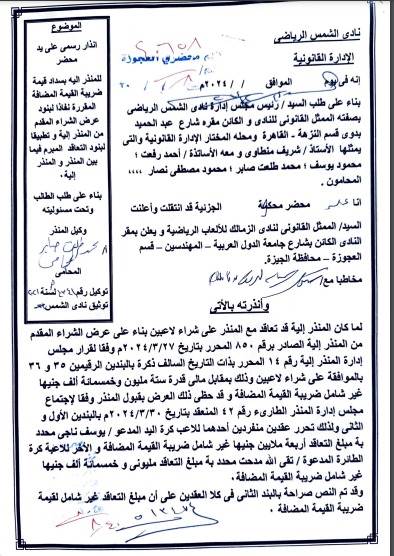 نادى الشمس الرياضى
الإدارة القانونية
إنه فى يوم الموافق / /٢٠٢٤م
بناء على طلب السيد / رئيس مجلس إدارة نادى الشمس الرياضى
بصفته الممثل القانونى للنادى والكائن مقره شارع عبد الحميد
بدوى قسم النزهة - القاهرة ومحله المختار الإدارة القانونية والتى
يمثلها الأستاذ / شريف منطاوى و معه الأساتذة / أحمد رفعت ؛
محمود يوسف ؛ محمد طلعت صابر ؛ محمود مصطفى نصار ,,,,
المحامون .
انا محضر محكمة الجزئية قد انتقلت وأعلنت
السيد/ الممثل القانونى لنادى الزمالك للألعاب الرياضية و يعلن بمقر
النادى الكائن بشارع جامعة الدول العربية – المهندسين – قسم
العجوزة – محافظة الجيزة.
مخاطبا مع
وأنذرته بالأتى
لما كان المنذر إلية قد تعاقد مع المنذر على شراء لاعبين بناء على عرض الشراء المقدم
من المنذر إلية الصادر برقم ٨٥٠ المحرر بتاريخ ٢٠٢٤/٣/٢٧م وفقا لقرار مجلس
إدارة المنذر إلية رقم ١٤ المحرر بذات التاريخ السالف ذكرة بالبندين الرقيمين ٣٥ و ٣٦
بالموافقة على شراء لاعبين وذلك بمقابل مالى قدرة ستة مليون وخمسمائة ألف جنيها
غير شامل ضريبة القيمة المضافة و قد حظي ذلك العرض بقبول المنذر وفقا لإجتماع
مجلس إدارة المنذر الطارىء رقم ٤٢ المنعقد بتاريخ ٢٠٢٤/٣/٣٠م بالبندين الأول و
الثانى ولذلك تحرر عقدين منفردين أحدهما للاعبة كرة اليد المدعو / يوسف ناجى محدد
بة مبلغ التعاقد أربعة ملايين جنيها غير شامل ضريبة القيمة المضافة و الأخر للاعبة كرة
الطائرة المدعوة / تقى الله مدحت محدد بة مبلغ التعاقد مليونى و خمسمائة ألف جنيها
غير شامل ضريبة القيمة المضافة.
وقد تم النص صراحة بالبند الثانى فى كلا العقدين على أن مبلغ التعاقد غير شامل لقيمة
ضريبة القيمة المضافة .
الموضوع
انذار رسمى على يد
محضر
للمنذر اليه بسداد قيمة
ضريبة القيمة المضافة
المقررة نفاذا لبنود
عرض الشراء المقدم
من المنذر إلية و تطبيقا
لبنود التعاقد المبرم فيما
بين المنذر و المنذر
إلية.
بناء على طلب الطالب
وتحت مسئوليته
وكيل المنذر
المحامى
توكيل رقم لسنة
توثيق نادى الشمس